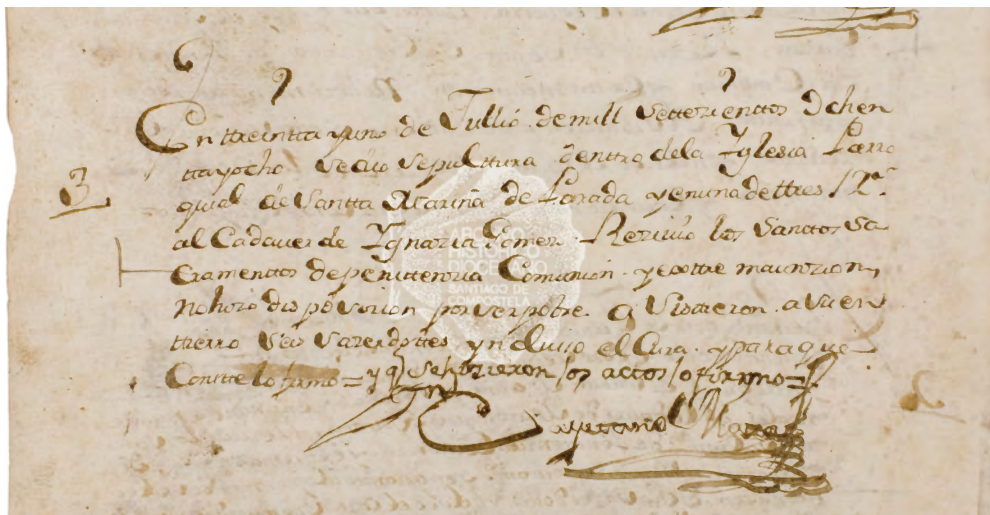 En ttreintta y uno de Jullio de mill settezienttos ochen
3
ttayocho se dio sepulttura dentro dela Yglesia Parro
quial de Santta Marina de Parada yenuna dettres Rs.
al Cadauer de Ygnazia Gomez. Rezivio los Santtos Sa
cramenttos de penittenzia Comunion y exttremaunzion,
nohizo disposizion por ser pobre. a sistieron a su en
ttierro seis sazerdottes ynclusso el Cura. y para que
Constte lo firmo = y q. se hizieron los actos lo firmo =
Cayettano
ARCHIVO
HISTÓRICO
DIOCESANO
SANTIAGO DE
COMPOSTELA